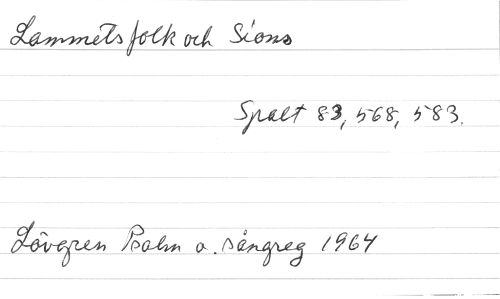 Lammets folk och Sions
Spalt 83, 568, 583.
Lövgren Psalm o. sångreg 1964